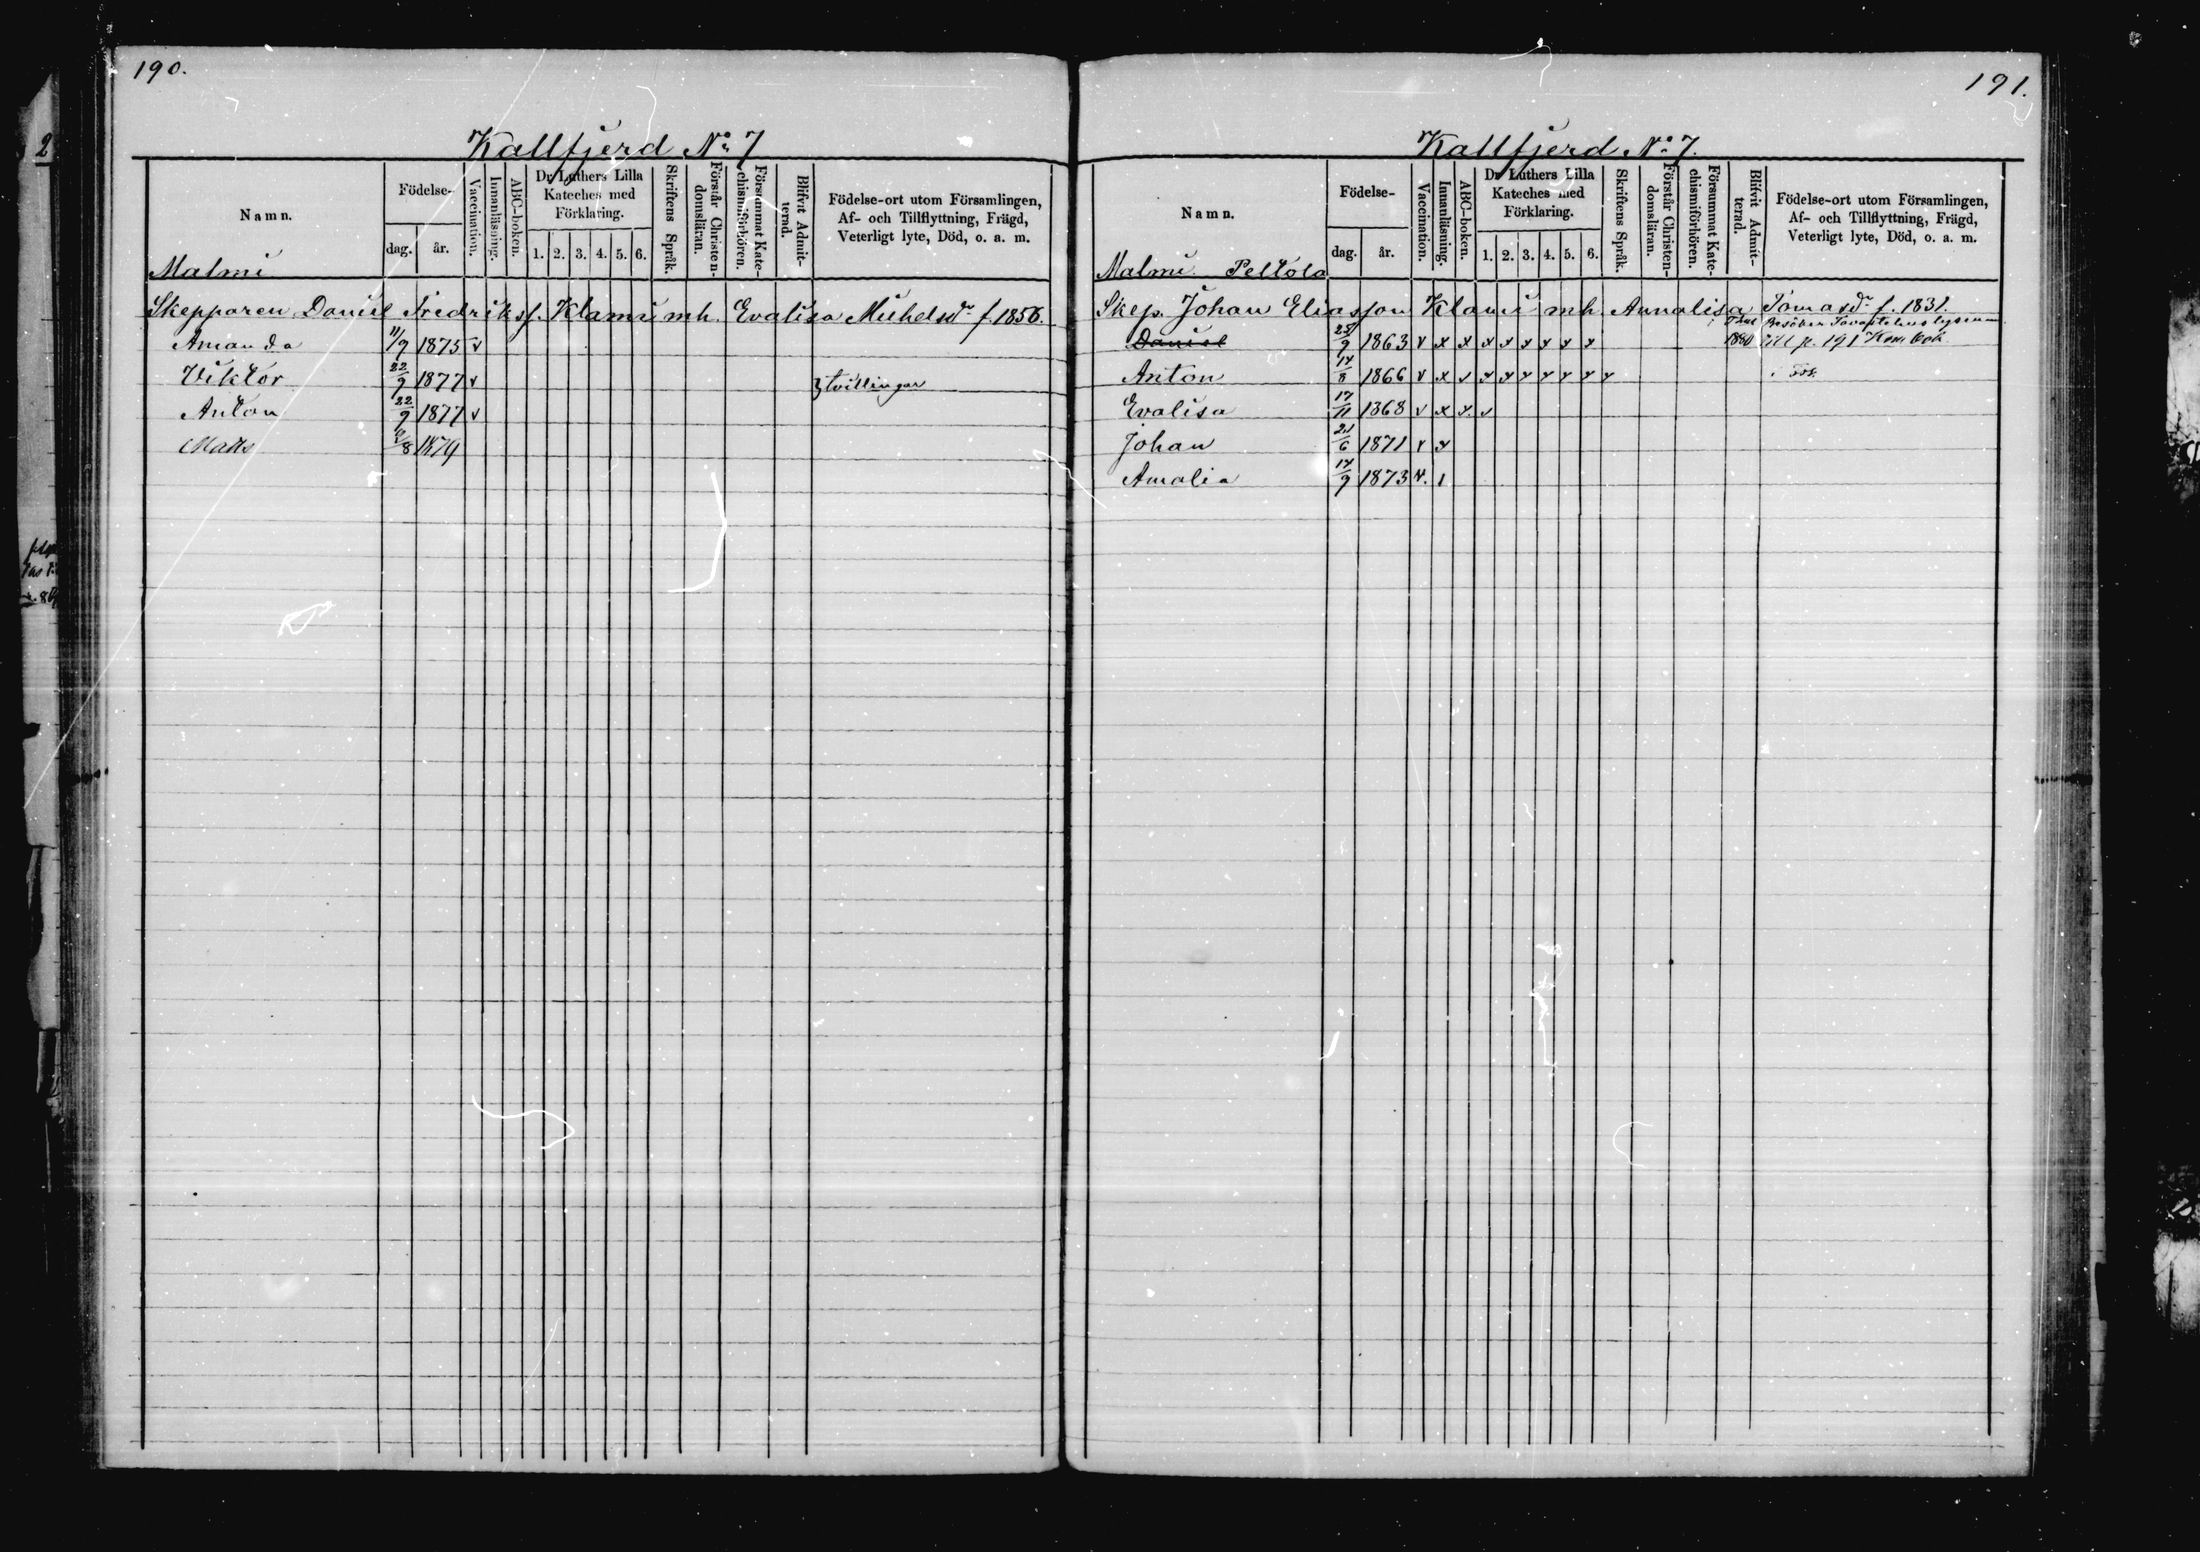 190.
Kallfjerd No 7
Namn.
Födelse-
dag. år.
Vaccination.
Innanläsning.
ABC-boken.
Dr Luthers Lilla
Kateches med
Förklaring.
1. 2. 3. 4. 5. 6.
Skriftens Språk.
Förstår Christen-
domsläran.
Försummat Kate-
chismiförhören.
Blifvit Admit-
terad.
Födelse-ort utom Församlingen,
Af- och Tillflyttning, Frägd,
Veterligt lyte, Död, o. a. m.
Malmi
Skepparen Daniel Fredrikss. Klami m h. Evalisa Michelsdr f. 1856.
Amanda 11/9 1875 v
Viktor 22/9 1877 v } tvillingar
Anton 22/9 1877 v
Matts /8 1879
191.
Kallfjerd No 7.
Namn.
Födelse-
dag. år.
Vaccination.
Innanläsning.
ABC-boken.
Dr Luthers Lilla
Kateches med
Förklaring.
1. 2. 3. 4. 5. 6.
Skriftens Språk.
Förstår Christen-
domsläran.
Försummat Kate-
chismiförhören.
Blifvit Admit-
terad.
Födelse-ort utom Församlingen,
Af- och Tillflyttning, Frägd,
Veterligt lyte, Död, o. a. m.
Malmi Peltola
Skep. Johan Eliasson Klami m h. Annalisa Tomasdr f. 1831.
Besöker Tavastehus lyseum
Daniel 25/9 1863 v x x x x x x x x 1880 till p. 191 Kom. bok.
Anton 14/8 1866 v x v x x x x x x x
Evalisa 17/11 1868 v x x. v
Johan 21/6 1871 v x
Amalia 14/9 1873 v. 1